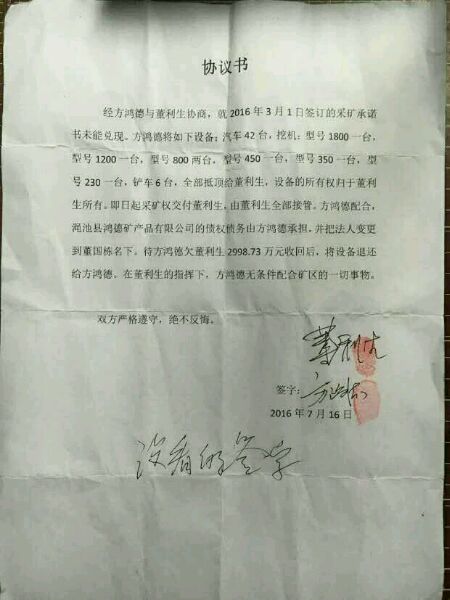 协议书
经方鸿德与董利生协商，就 2016 年 3 月 1 日签订的采矿承诺
书未能兑现。方鸿德将如下设备：汽车 42 台，挖机：型号 1800 一台，
型号 1200 一台，型号 800 两台，型号 450 一台，型号 350 一台，型
号 230 一台，铲车 6 台，全部抵顶给董利生，设备的所有权归于董利
生所有。即日起采矿权交付董利生，由董利生全部接管。方鸿德配合，
渑池县鸿德矿产品有限公司的债权债务由方鸿德承担，并把法人变更
到董国栋名下。待方鸿德欠董利生 2998.73 万元收回后，将设备退还
给方鸿德。在董利生的指挥下，方鸿德无条件配合矿区的一切事物。
双方严格遵守，绝不反悔。
董利生
签字：
2016 年 7 月 16 日
没看的签字